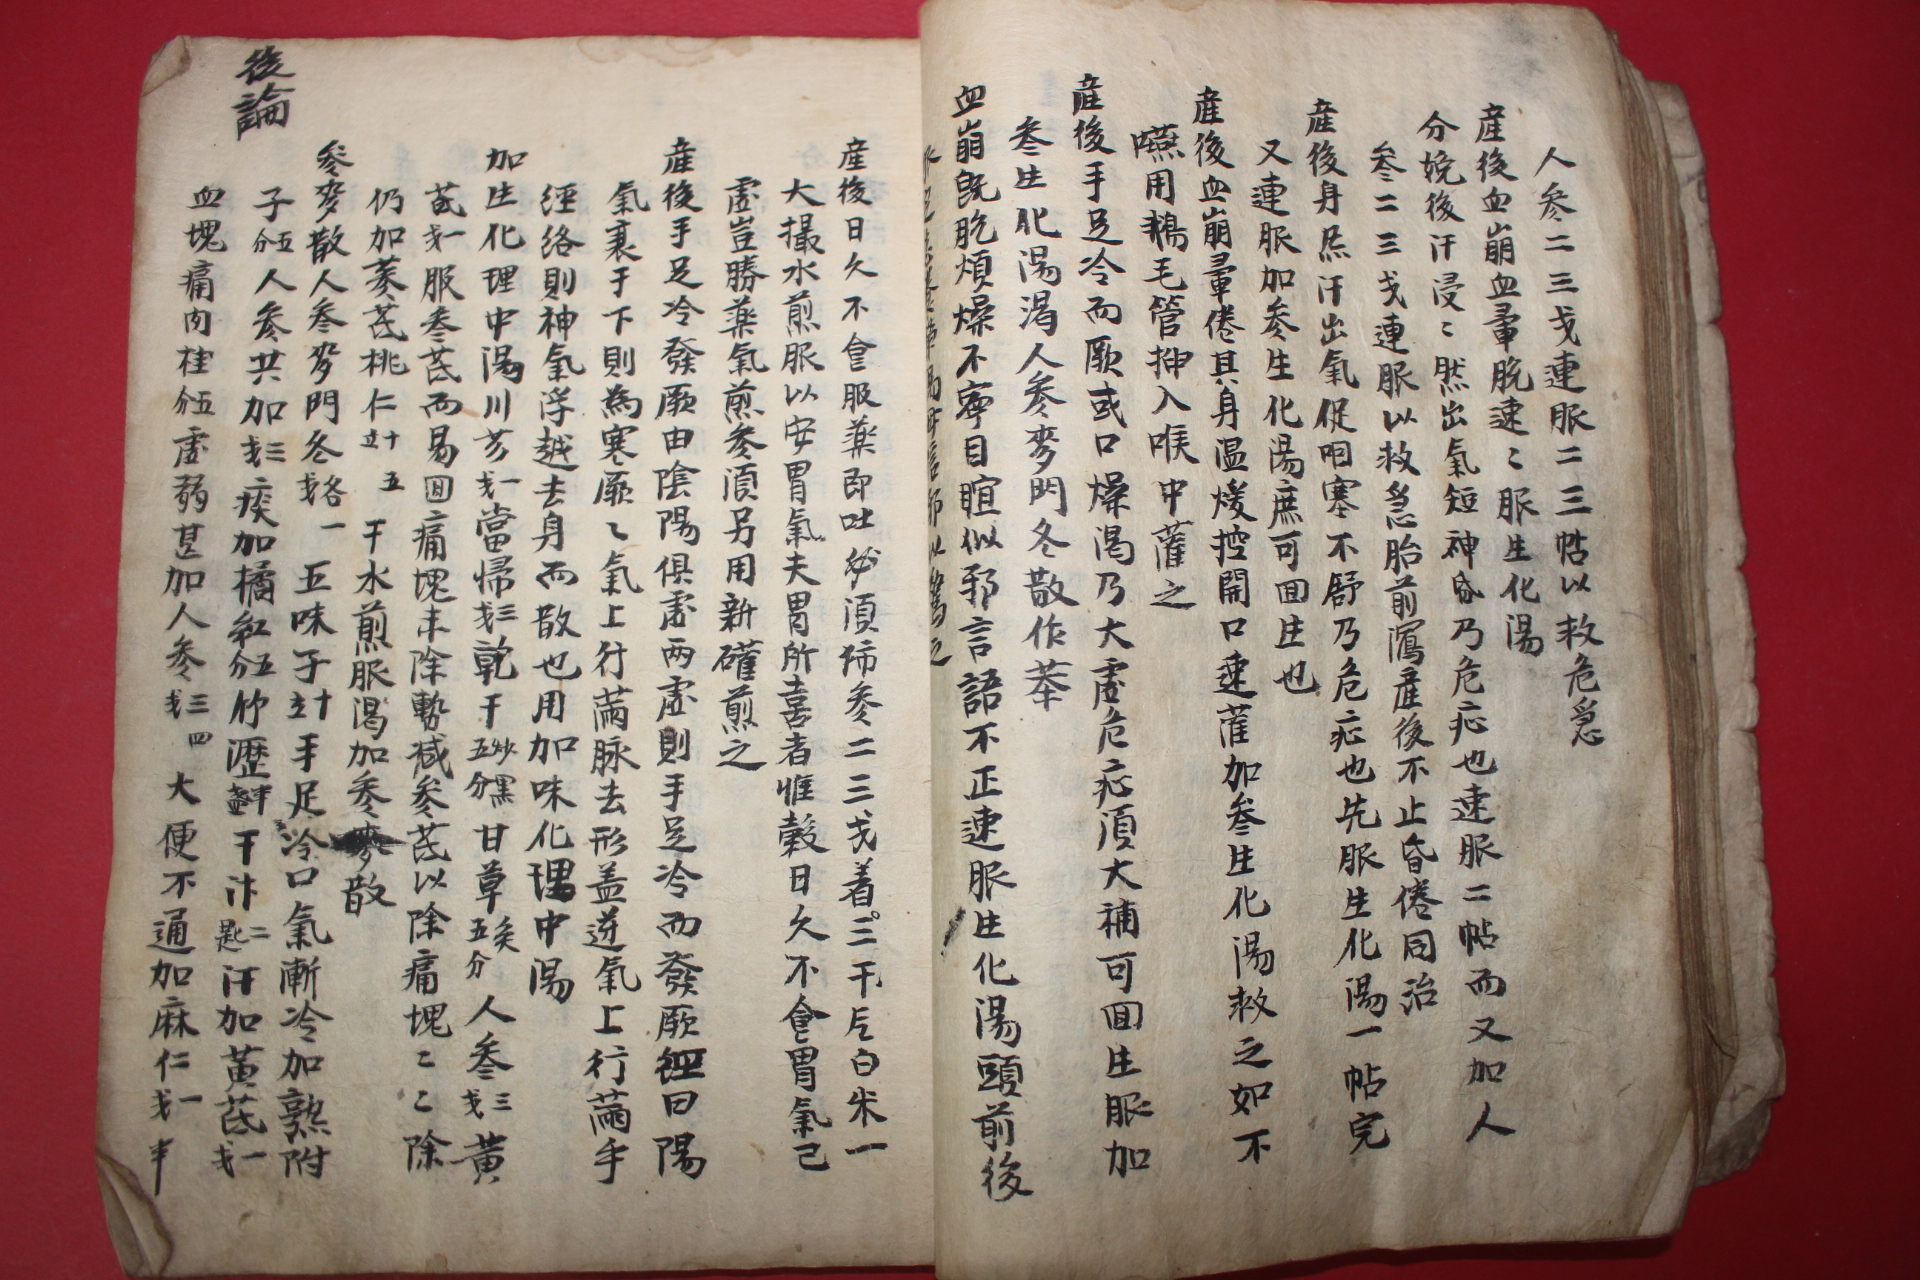 人參二三戔連服二三帖以救危急
産後血崩血暈脫速〻服生化湯
分娩後汗浸〻然出氣短神昏乃危症也速服二帖而又加人
參二三戔連服以救急胎前瀉産後不止昏倦同治
産後身热汗出氣促咽塞不舒乃危症也先服生化湯一帖完
又連服加參生化湯庶可回生也
産後血崩暈倦其身温煖控開口速灌加參生化湯救之如不
嚥用鵝毛管揷入喉中灌之
産後手足冷而厥或口燥渴乃大虚危症湏大補可回生服加
參生化湯渴人參麥門冬散作茶
血崩旣脫煩燥不寧目暄似邪言語不正速服生化湯頭前後
後論
産後日久不食服藥即吐必湏䏶參二三戔着二三干片白米一
大撮水煎服以安胃氣夫胃所喜者惟穀日久不食胃氣已
虚豈勝藥氣煎參湏另用新礶煎之
産後手足冷發厥由陰陽俱虚兩虚則手足冷而發厥經曰陽
氣衰于下則為寒厥〻氣上行滿脉去形盖逆氣上行滿手
經絡則神氣浮越去身而散也用加味化理中湯
加生化理中湯川芎戔一當歸戔三乾干五分炒黑甘草五分炙人參戔三黃
芪戔一服參芪而易回痛塊未除暫减參芪以除痛塊〻〻除
仍加參芪桃仁十五干水煎服渴加參麥散
參麥散人參麥門冬各戔一五味子十手足冷口氣漸冷加熟附
子五分人參共加戔三痰加橘紅五分竹瀝半盞干汁二匙汗加黃芪戔一
血塊痛肉桂五分虚弱甚加人參戔三四大便不通加麻仁戔一半